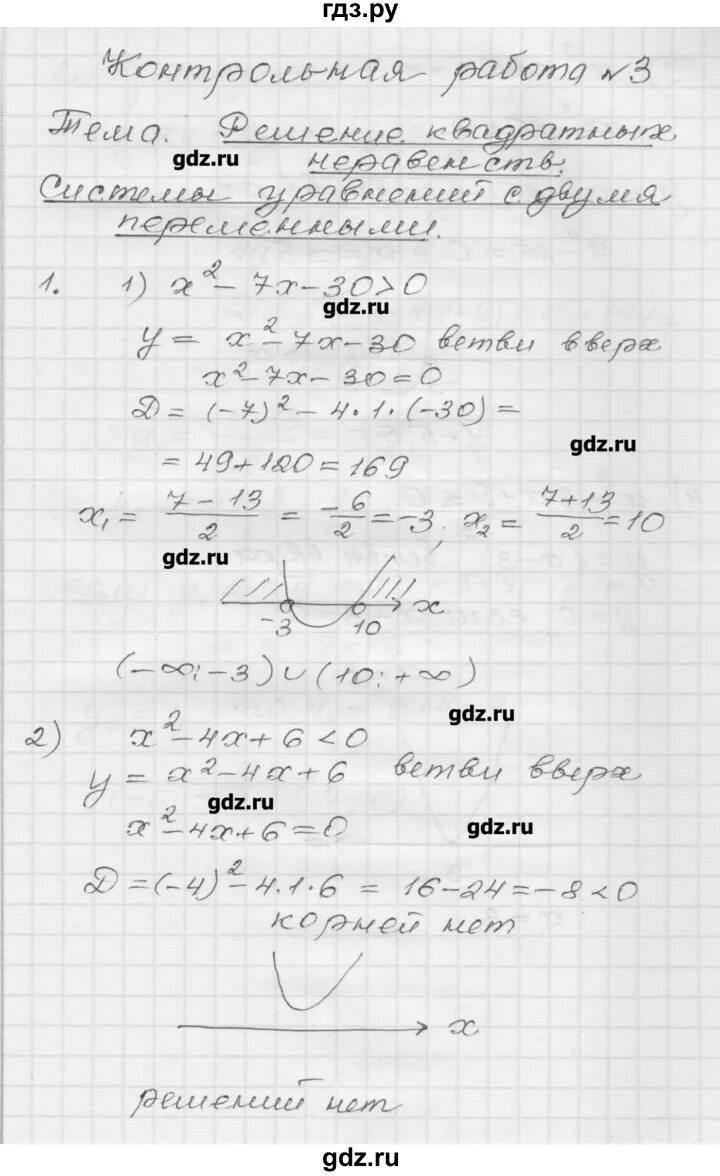 гдз.ру
Контрольная работа №3
Тема. Решение квадратных
gdz.ru
неравенств.
Системы уравнений с двумя
переменными.
1. 1) x² - 7x - 30 > 0
gdz.ru
y = x² - 7x - 30 ветви вверх
x² - 7x - 30 = 0
D = (-7)² - 4·1·(-30) =
gdz.ru
= 49 + 120 = 169
x₁ = (7 - 13)/2 = -6/2 = -3; x₂ = (7 + 13)/2 = 10
gdz.ru
-3 10 x
(-∞; -3) ∪ (10; +∞)
gdz.ru
2) x² - 4x + 6 < 0
y = x² - 4x + 6 ветви вверх
gdz.ru
x² - 4x + 6 = 0
gdz.ru
D = (-4)² - 4·1·6 = 16 - 24 = -8 < 0
корней нет
x
решений нет
gdz.ru